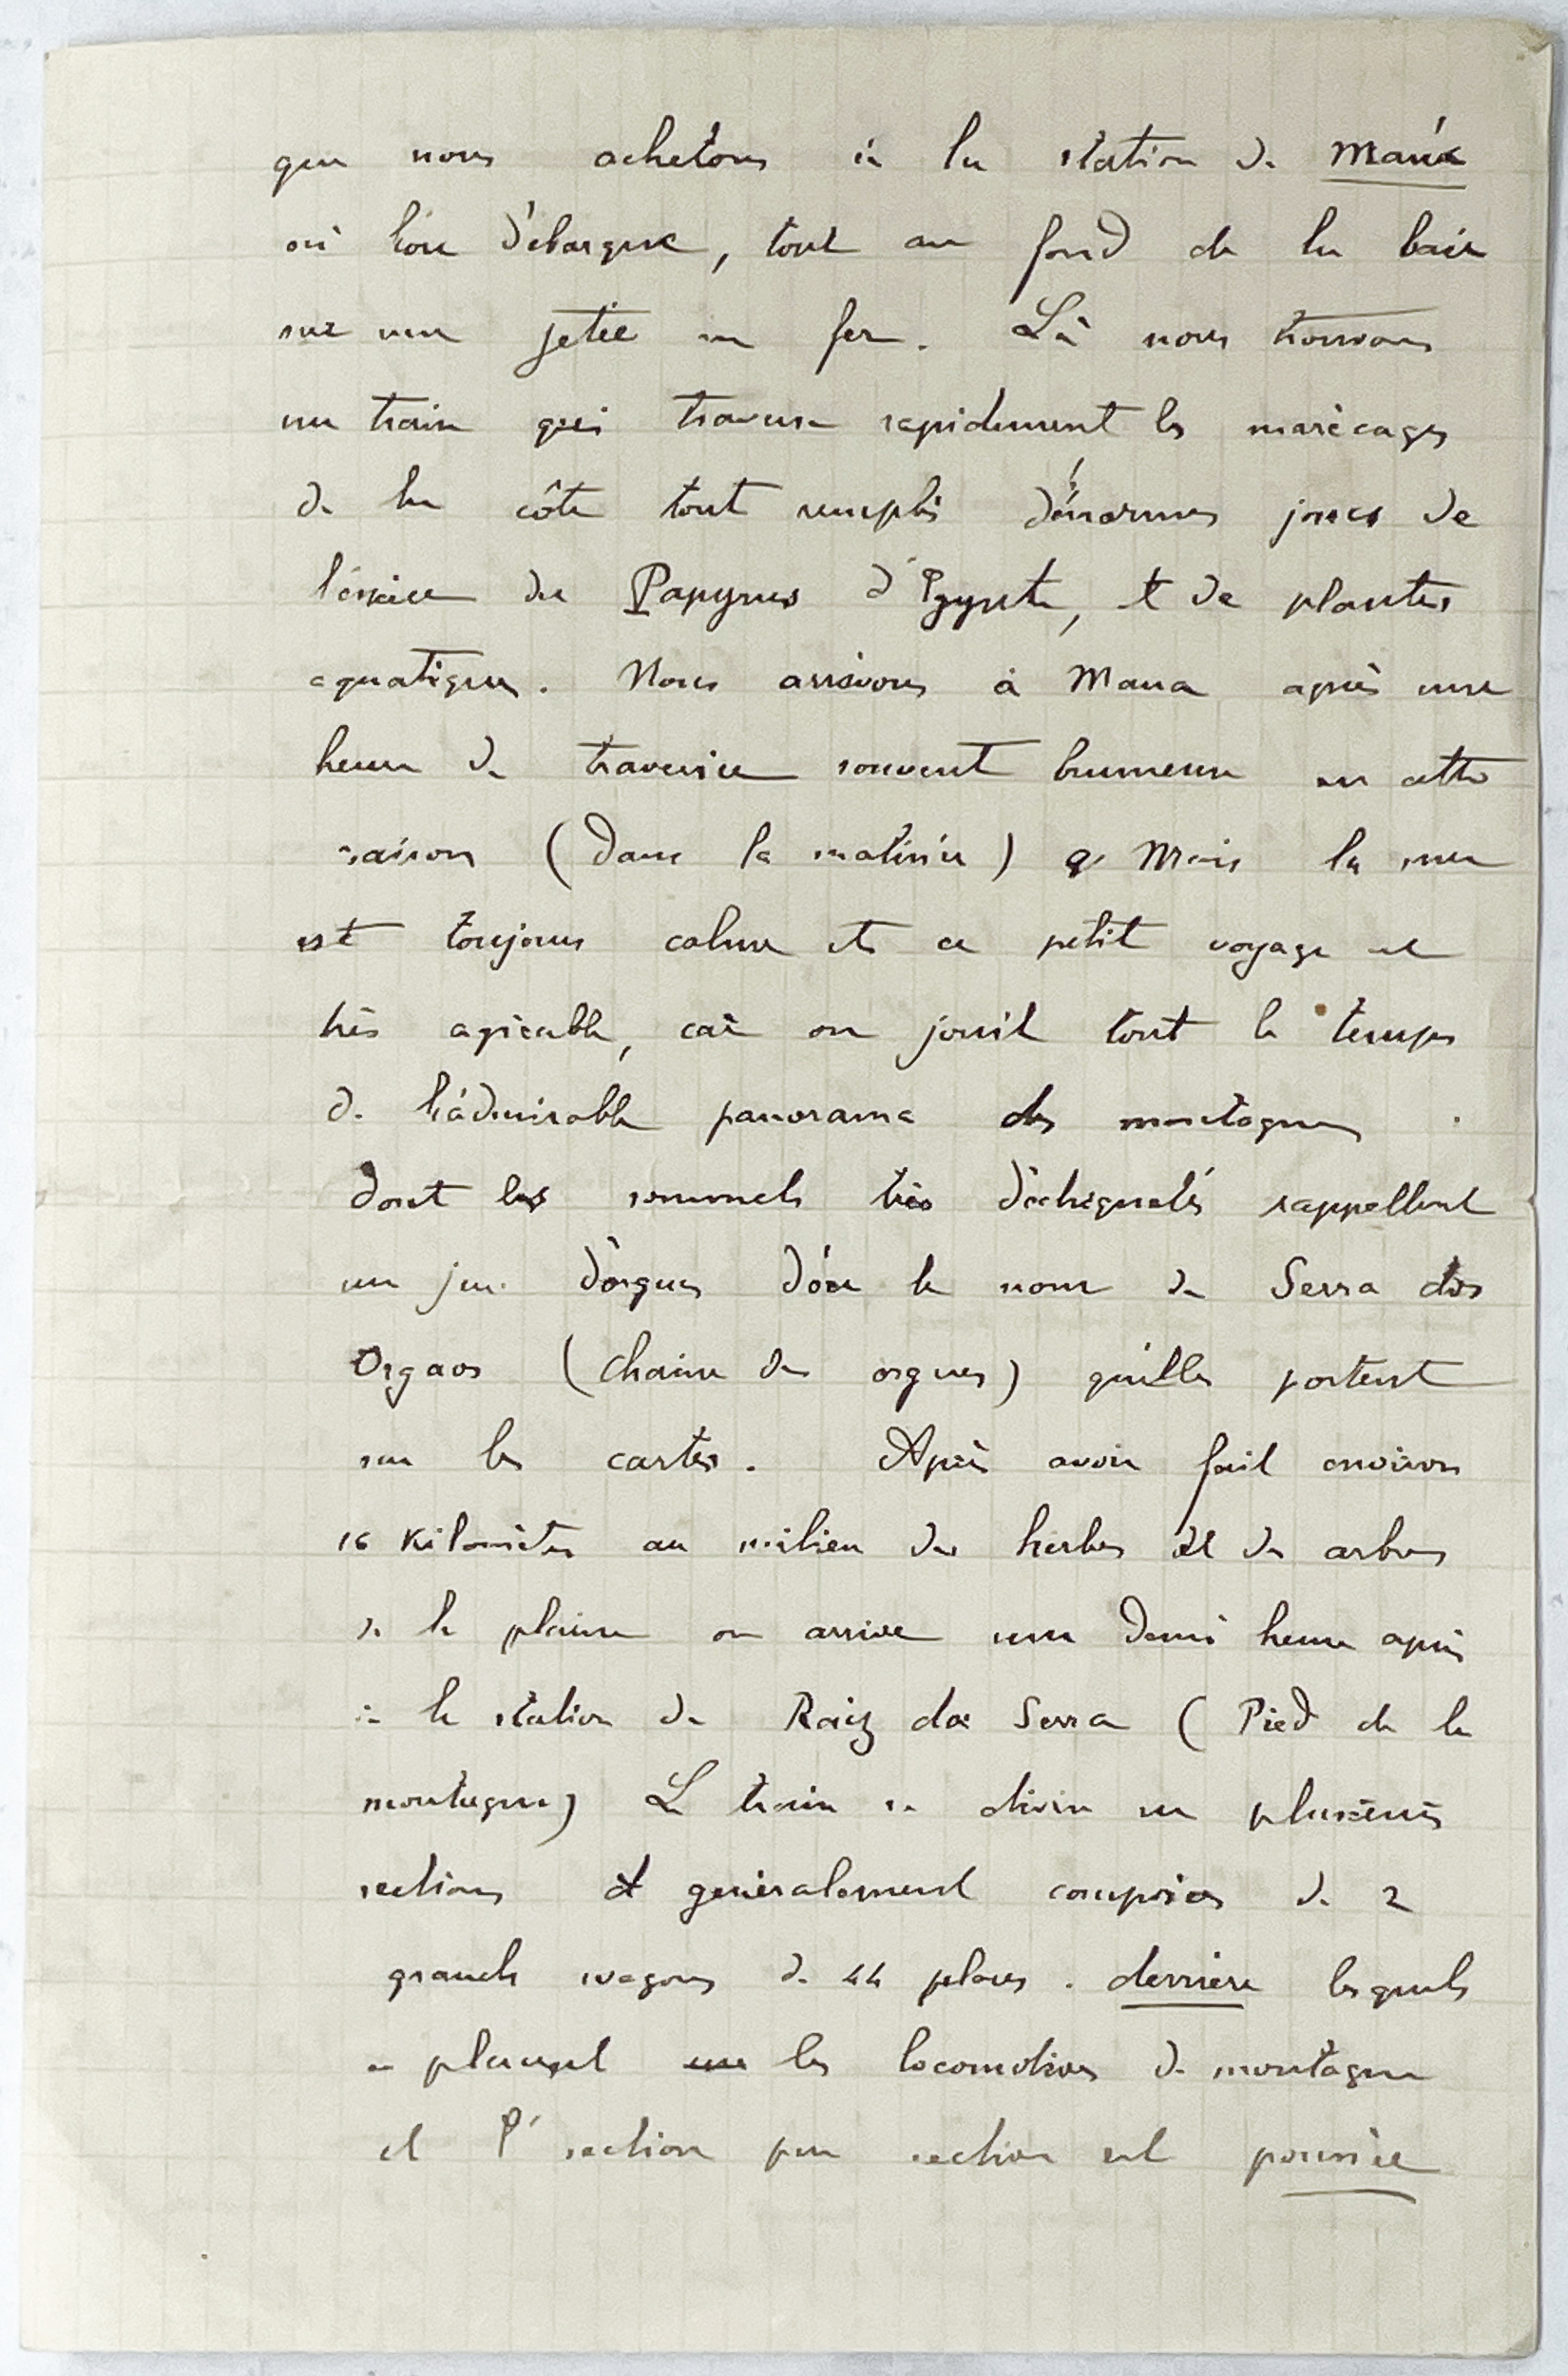 que nous achetons à la station de Mauá
où l'on débarque, tout au fond de la baie
sur une jetée en fer. Là nous trouvons
un train qui traverse rapidement les marécages
de la côte tout remplis d'énormes joncs de
l'espèce du Papyrus d'Egypte, et de plantes
aquatiques. Nous arrivons à Maua après une
heure de traversée souvent brumeuse en cette
saison (dans la matinée) Mais la mer
est toujours calme et ce petit voyage est
très agréable, car on jouit tout le temps
de l'admirable panorama des montagnes
dont les sommets très déchiquetés rappellent
un jeu d'orgues d'où le nom de Serra dos
Orgaos (chaine des orgues) qu'elles portent
sur les cartes. Après avoir fait environ
16 Kilomètres au milieu des herbes et des arbres
de la plaine on arrive une demi heure après
à la station de Raiz da Serra (Pied de la
montagne) Le train se divise en plusieurs
sections et généralement composées de 2
grands wagons de 44 places. derrière lesquels
se placent les locomotives de montagne
et section par section est poussée